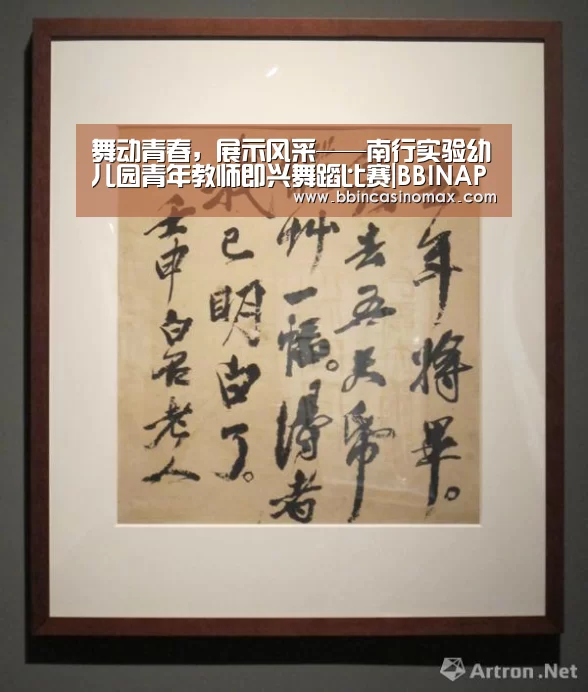 舞动青春，展示风采——南行实验幼
儿园青年教师即兴舞蹈比赛|BBINAP
www.bbincasinomax.com
年將畢。
去五
艸一幅。得者
我已明白了。
壬申白石老人
Artron.Net